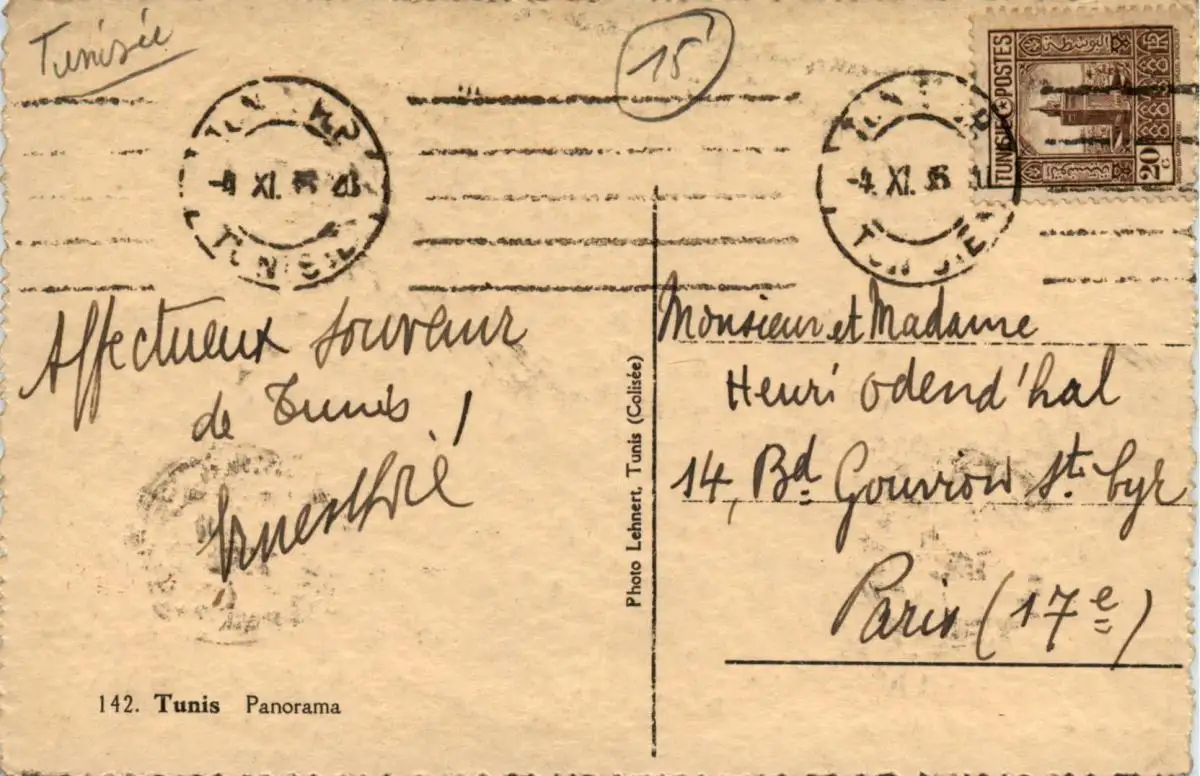 Tunisie
15
TUNIS R.P.
-4 XI. 36
TUNISIE
-4. XI. 36
TUNISIE
TUNISIE POSTES
البوسطة التونسية
RF
20 c.
Affectueux souvenir
de Tunis !
Monsieur et Madame
Henri Odend'hal
14, Bd Gouvion St. Cyr
Paris (17e)
Photo Lehnert, Tunis (Colisée)
142. Tunis Panorama